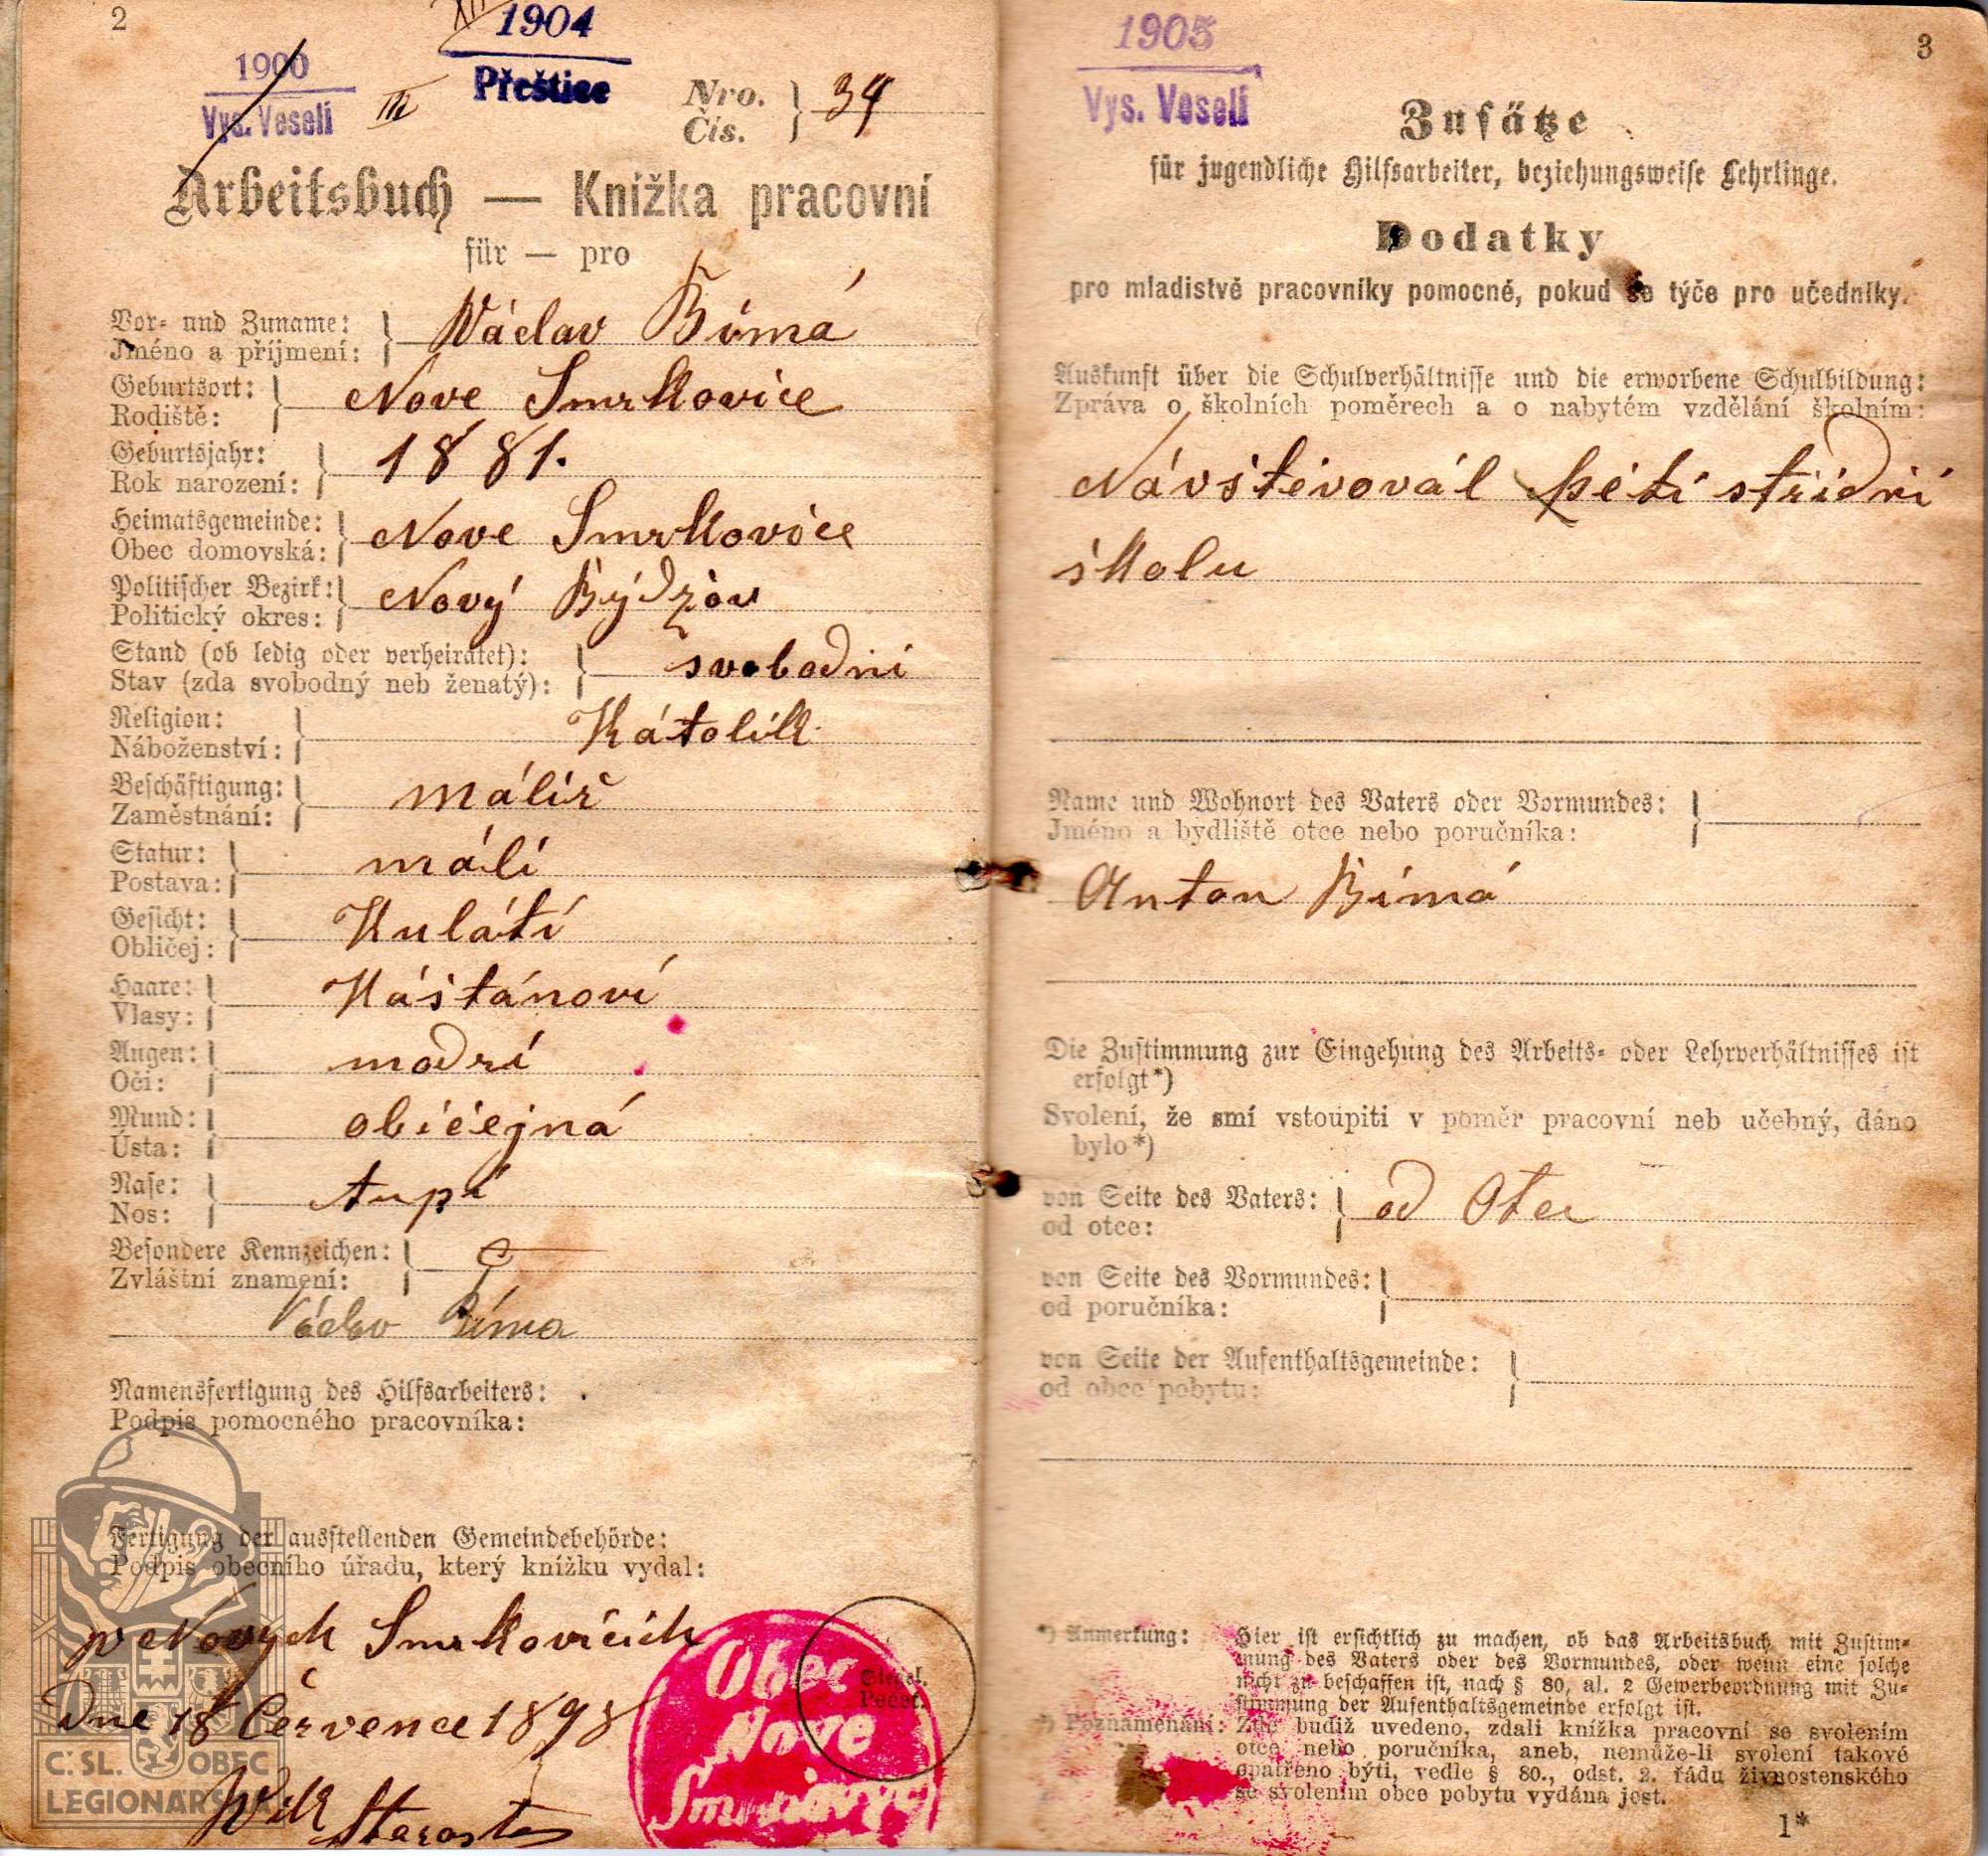 2
1900
Vys. Veselí
III
XII
1904
Přeštice
Nro.
Čís. } 34
Arbeitsbuch — Knížka pracovní
für — pro
Vor- und Zuname:
Jméno a příjmení: } Václav Římá
Geburtsort:
Rodiště: } Nove Smrkovice
Geburtsjahr:
Rok narození: } 1881.
Heimatsgemeinde:
Obec domovská: } Nove Smrkovice
Politischer Bezirk:
Politický okres: } Nový Býdzov
Stand (ob ledig oder verheiratet):
Stav (zda svobodný neb ženatý): } svobodni
Religion:
Náboženství: } Kátolik
Beschäftigung:
Zaměstnání: } málíř
Statur:
Postava: } málí
Gesicht:
Obličej: } Kulátí
Haare:
Vlasy: } Kástánoví
Augen:
Oči: } modrí
Mund:
Ústa: } običejná
Nase:
Nos: } tupí
Besondere Kennzeichen:
Zvláštní znamení: }
Václav Říma
Namensfertigung des Hilfsarbeiters:
Podpis pomocného pracovníka:
Fertigung der ausstellenden Gemeindebehörde:
Podpis obecního úřadu, který knížku vydal:
v Nových Smrkovicích
Dne 18 Července 1898
Starosta
Obec
Nové
Siegel.
Pečeť.
Č. SL. OBEC
LEGIONÁŘSKÁ
1905
Vys. Veselí
3
Zusätze
für jugendliche Hilfsarbeiter, beziehungsweise Lehrlinge.
Dodatky
pro mladistvé pracovníky pomocné, pokud se týče pro učedníky.
Auskunft über die Schulverhältnisse und die erworbene Schulbildung:
Zpráva o školních poměrech a o nabytém vzdělání školním:
Návštěvovál péti střídní
školu
Name und Wohnort des Vaters oder Vormundes:
Jméno a bydliště otce nebo poručníka: }
Anton Římá
Die Zustimmung zur Eingehung des Arbeits- oder Lehrverhältnisses ist
erfolgt*)
Svolení, že smí vstoupiti v poměr pracovní neb učebný, dáno
bylo*)
von Seite des Vaters:
od otce: } od Otce
von Seite des Vormundes:
od poručníka: }
von Seite der Aufenthaltsgemeinde:
od obce pobytu: }
*) Anmerkung: Hier ist ersichtlich zu machen, ob das Arbeitsbuch mit Zustim-
mung des Vaters oder des Vormundes, oder wenn eine solche
nicht zu beschaffen ist, nach § 80, al. 2 Gewerbeordnung mit Zu-
stimmung der Aufenthaltsgemeinde erfolgt ist.
*) Poznamenání: Zde budiž uvedeno, zdali knížka pracovní se svolením
otce nebo poručníka, aneb, nemůže-li svolení takové
opatřeno býti, vedle § 80., odst. 2. řádu živnostenského
se svolením obce pobytu vydána jest.
1*